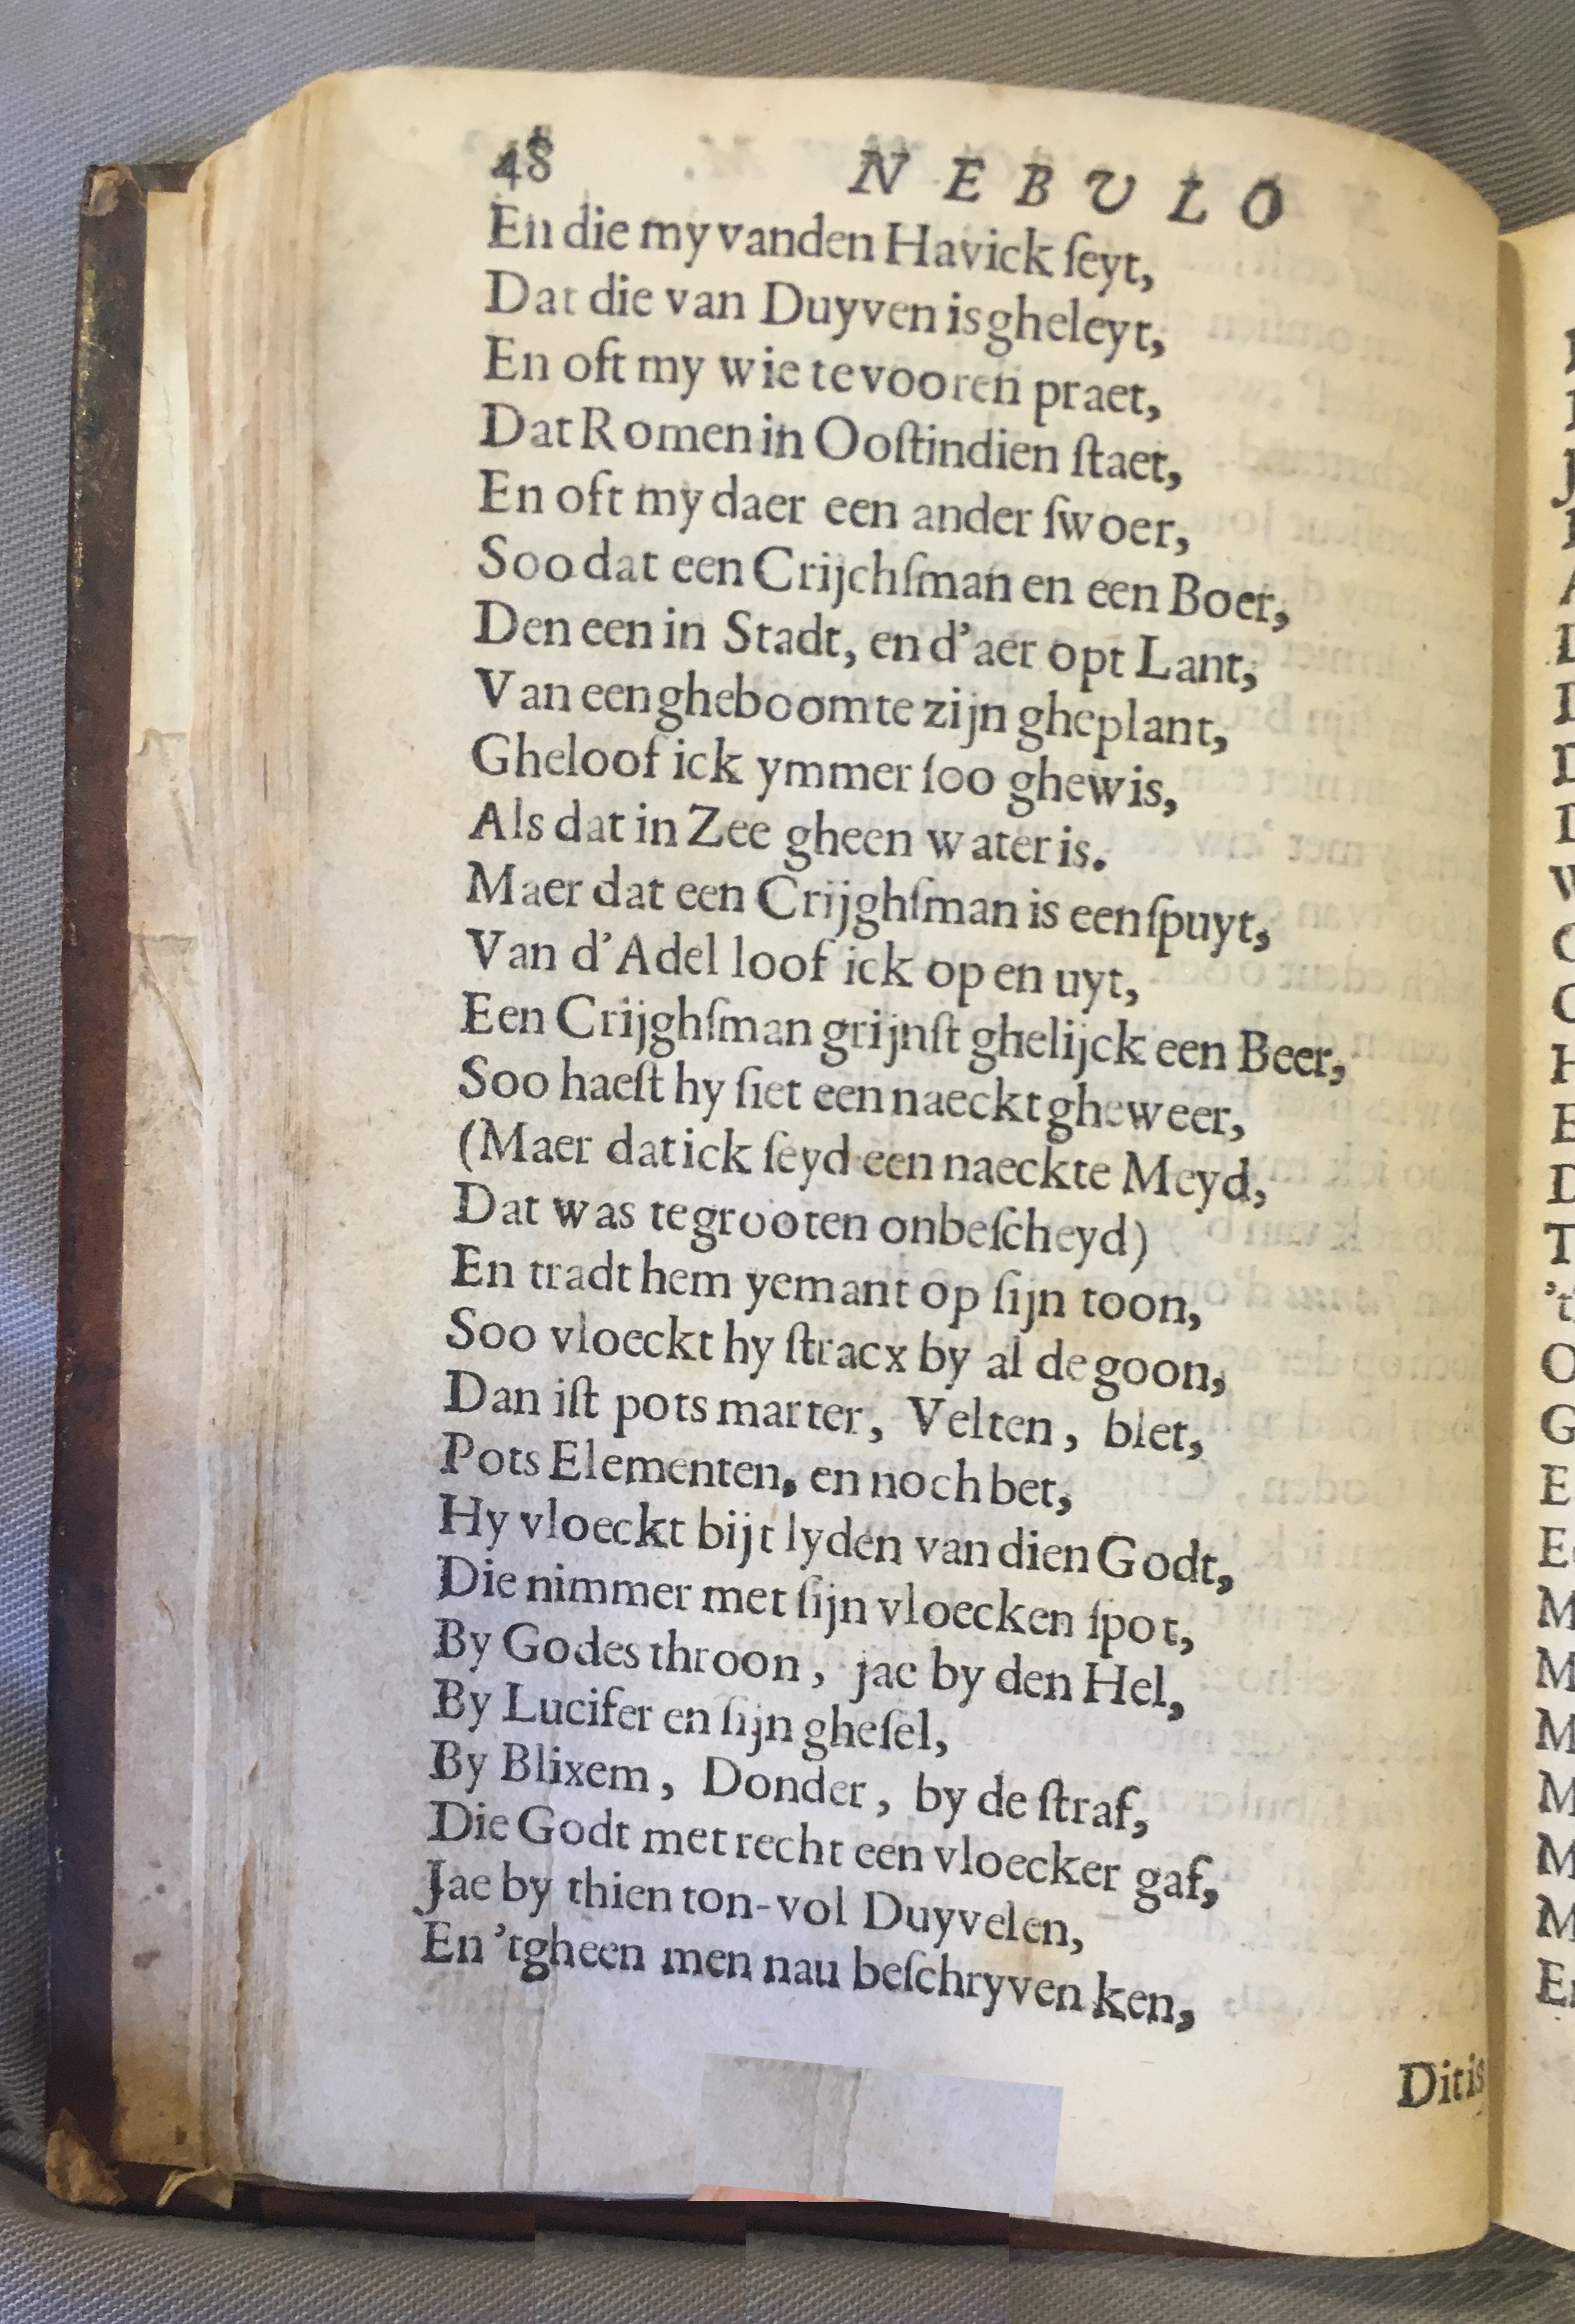 48 NEBULO
En die my vanden Havick ſeyt,
Dat die van Duyven is gheleyt,
En oft my wie te vooren praet,
Dat Romen in Ooſtindien ſtaet,
En oft my daer een ander ſwoer,
Soo dat een Crijchſman en een Boer,
Den een in Stadt, en d'aer opt Lant,
Van een gheboomte zijn gheplant,
Gheloof ick ymmer ſoo ghewis,
Als dat in Zee gheen water is.
Maer dat een Crijghſman is een ſpuyt,
Van d'Adel loof ick op en uyt,
Een Crijghſman grijnſt ghelijck een Beer,
Soo haeſt hy ſiet een naeckt gheweer,
(Maer dat ick ſeyd een naeckte Meyd,
Dat was te grooten onbeſcheyd)
En tradt hem yemant op ſijn toon,
Soo vloeckt hy ſtracx by al de goon,
Dan iſt pots marter, Velten, blet,
Pots Elementen, en noch bet,
Hy vloeckt bijt lyden van dien Godt,
Die nimmer met ſijn vloecken ſpot,
By Godes throon, jae by den Hel,
By Lucifer en ſijn gheſel,
By Blixem, Donder, by de ſtraf,
Die Godt met recht een vloecker gaf,
Jae by thien ton-vol Duyvelen,
En 'tgheen men nau beſchryven ken,
Dit is